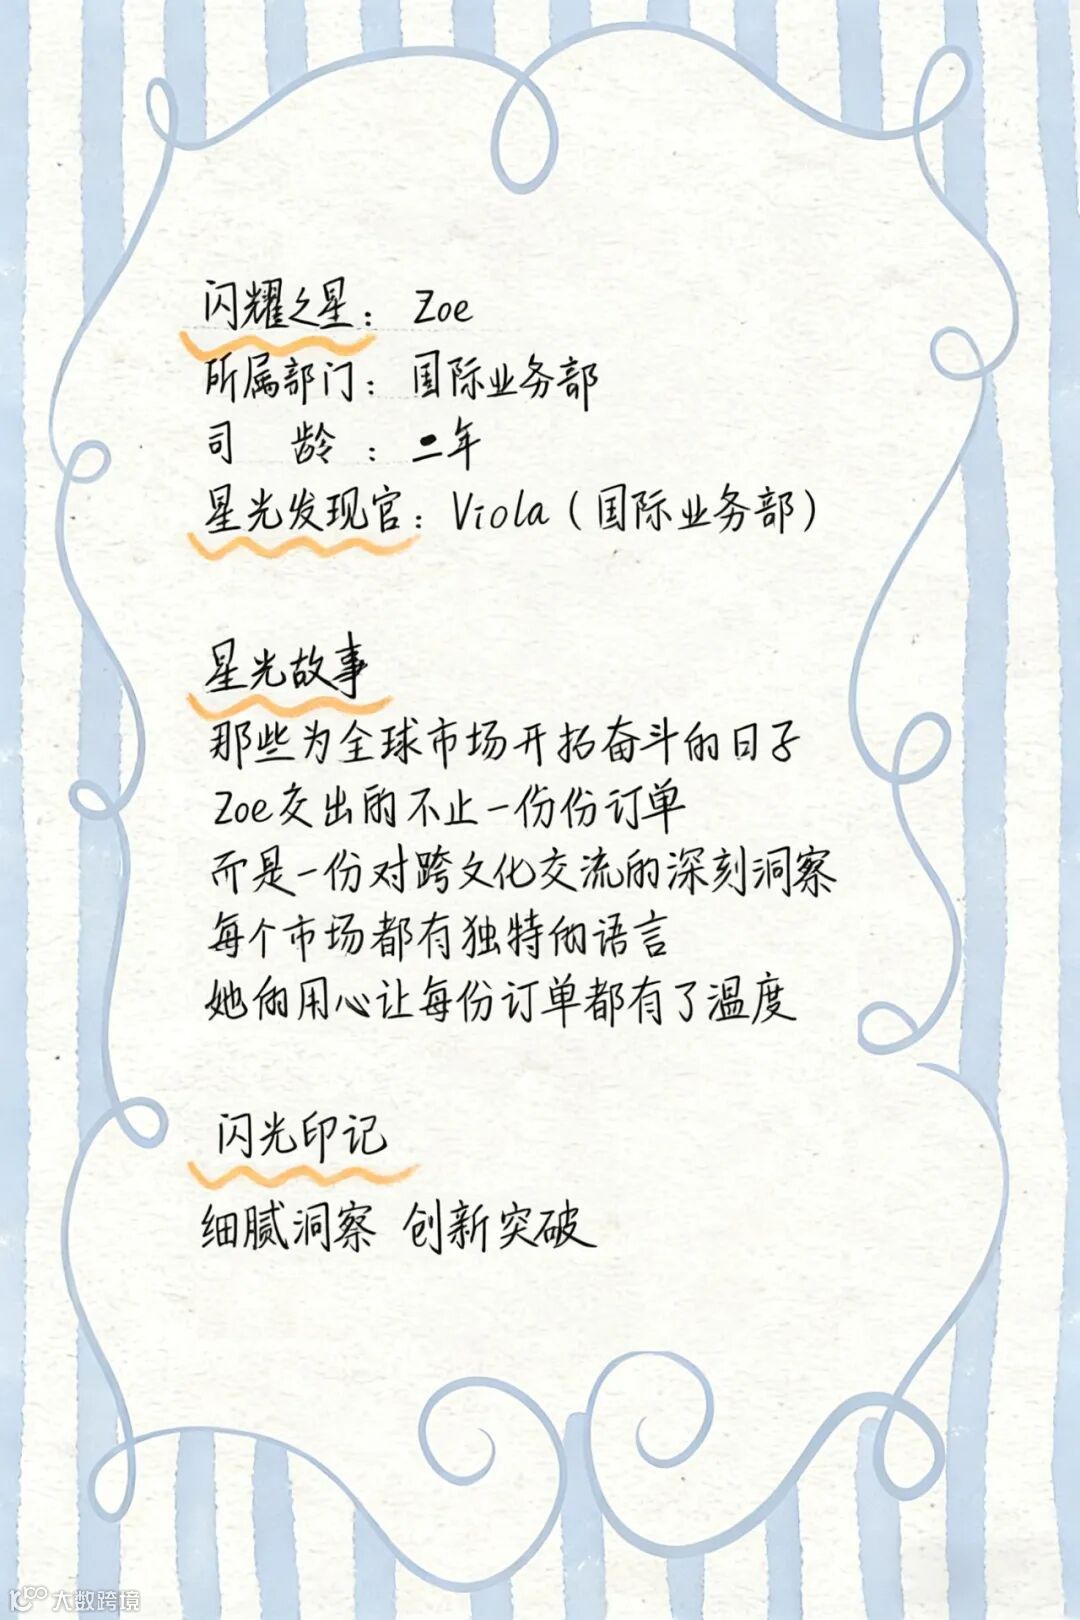 闪耀之星：Zoe
所属部门：国际业务部
司 龄 ：二年
星光发现官：Viola（国际业务部）
星光故事
那些为全球市场开拓奋斗的日子
Zoe交出的不止一份份订单
而是一份对跨文化交流的深刻洞察
每个市场都有独特的语言
她的用心让每份订单都有了温度
闪光印记
细腻洞察 创新突破
大数跨境